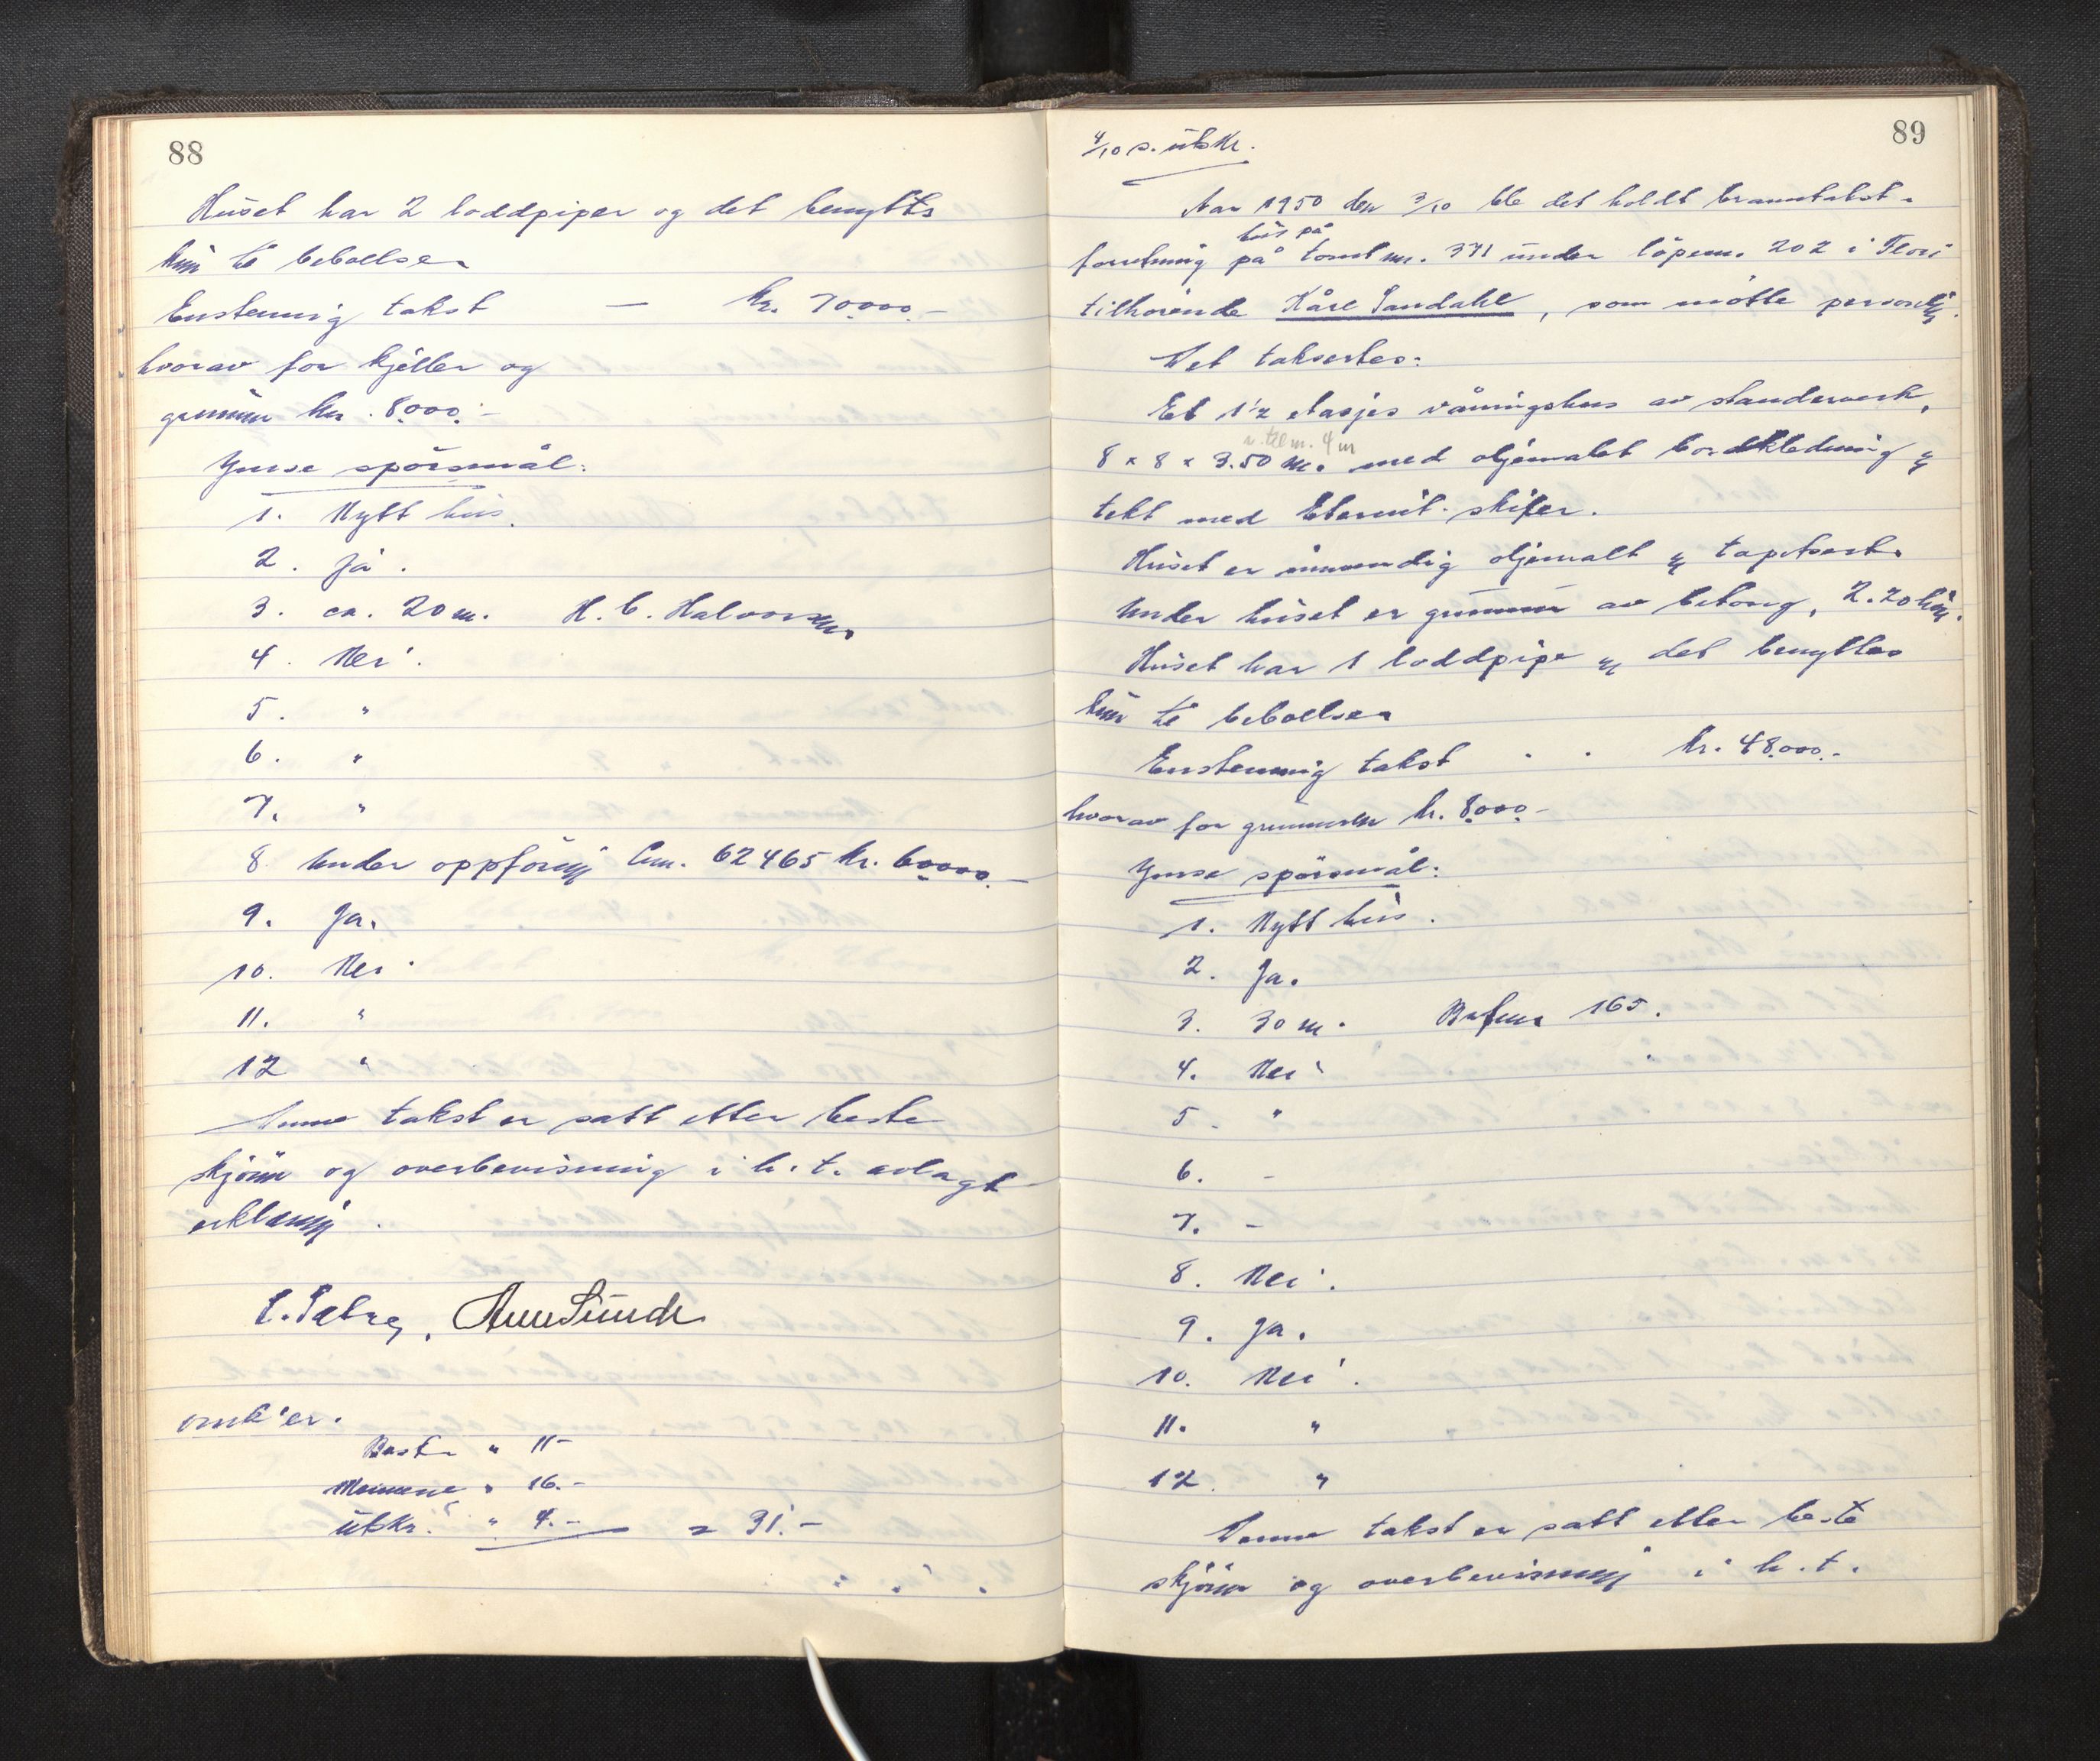 88
Huset har 2 loddpiper og det benyttes
kun til beboelse.
Enstemmig takst — kr. 70.000.-
hvorav for kjeller og
grunnmur kr. 8.000.-
Ymse spörsmål:
1. Nytt hus.
2. Ja.
3. ca. 20 m. H. C. Halvorsen.
4. Nei.
5. "
6. "
7. "
8. Under oppföring lnr. 62465 kr. 60000.-
9. Ja.
10. Nei.
11. "
12 "
Denne takst er satt etter beste
skjönn og overbevisning i h. t. avlagt
erklæring.
Arne Sunde
omk'er.
" 11-
Mennene " 16.-
Utskr. " 4.- = 31.-
89
4/10 s. utskr.
Aar 1950 den 3/10 ble det holdt branntakst-
hus på
forretning på tomt nr. 371 under löpenr. 202 i Florö
tilhörende Kåre Sandahl, som mötte personlig.
Det takseres:
Et 1½ etasjes våningshus av standerverk,
4 m
8 x 8 x 3.50 m. med oljemalet bordkledning og
tekt med Eternit-skifer.
Huset er innvendig oljemalt og tapetsert.
Under huset er grunnmur av betong, 2.20 höi.
Huset har 1 loddpipe og det benyttes
kun til beboelse.
Enstemmig takst - - kr. 48.000.-
hvorav for grunnmuren kr. 8.000.-
Ymse spörsmål:
1. Nytt hus.
2. Ja.
3. 30 m. 165.
4. Nei
5. "
6. -
7. -
8. Nei.
9. Ja.
10. Nei.
11. "
12. "
Denne takst er satt etter beste
skjönn og overbevisning i h. t.